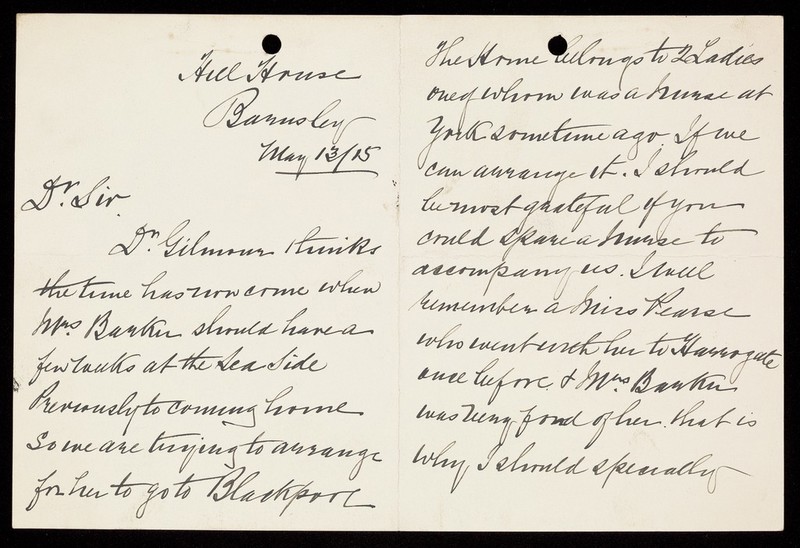 Hill House
Barnsley
May 13/15
Dr. Sir.
Dr. Gilmour thinks
the time has now come when
Mrs. Barker should have a
few weeks at the Sea Side
Previously to coming home
So we are trying to arrange
for her to go to Blackpool
The Home belongs to 2 Ladies
one of whom was a Nurse at
York sometime ago. If we
can arrange it. I should
be most grateful if you
could spare a Nurse to
accompany us. I well
remember a Miss Pearse
who went with her to Harrogate
once before, & Mrs Barker
was very fond of her. that is
why I should specially